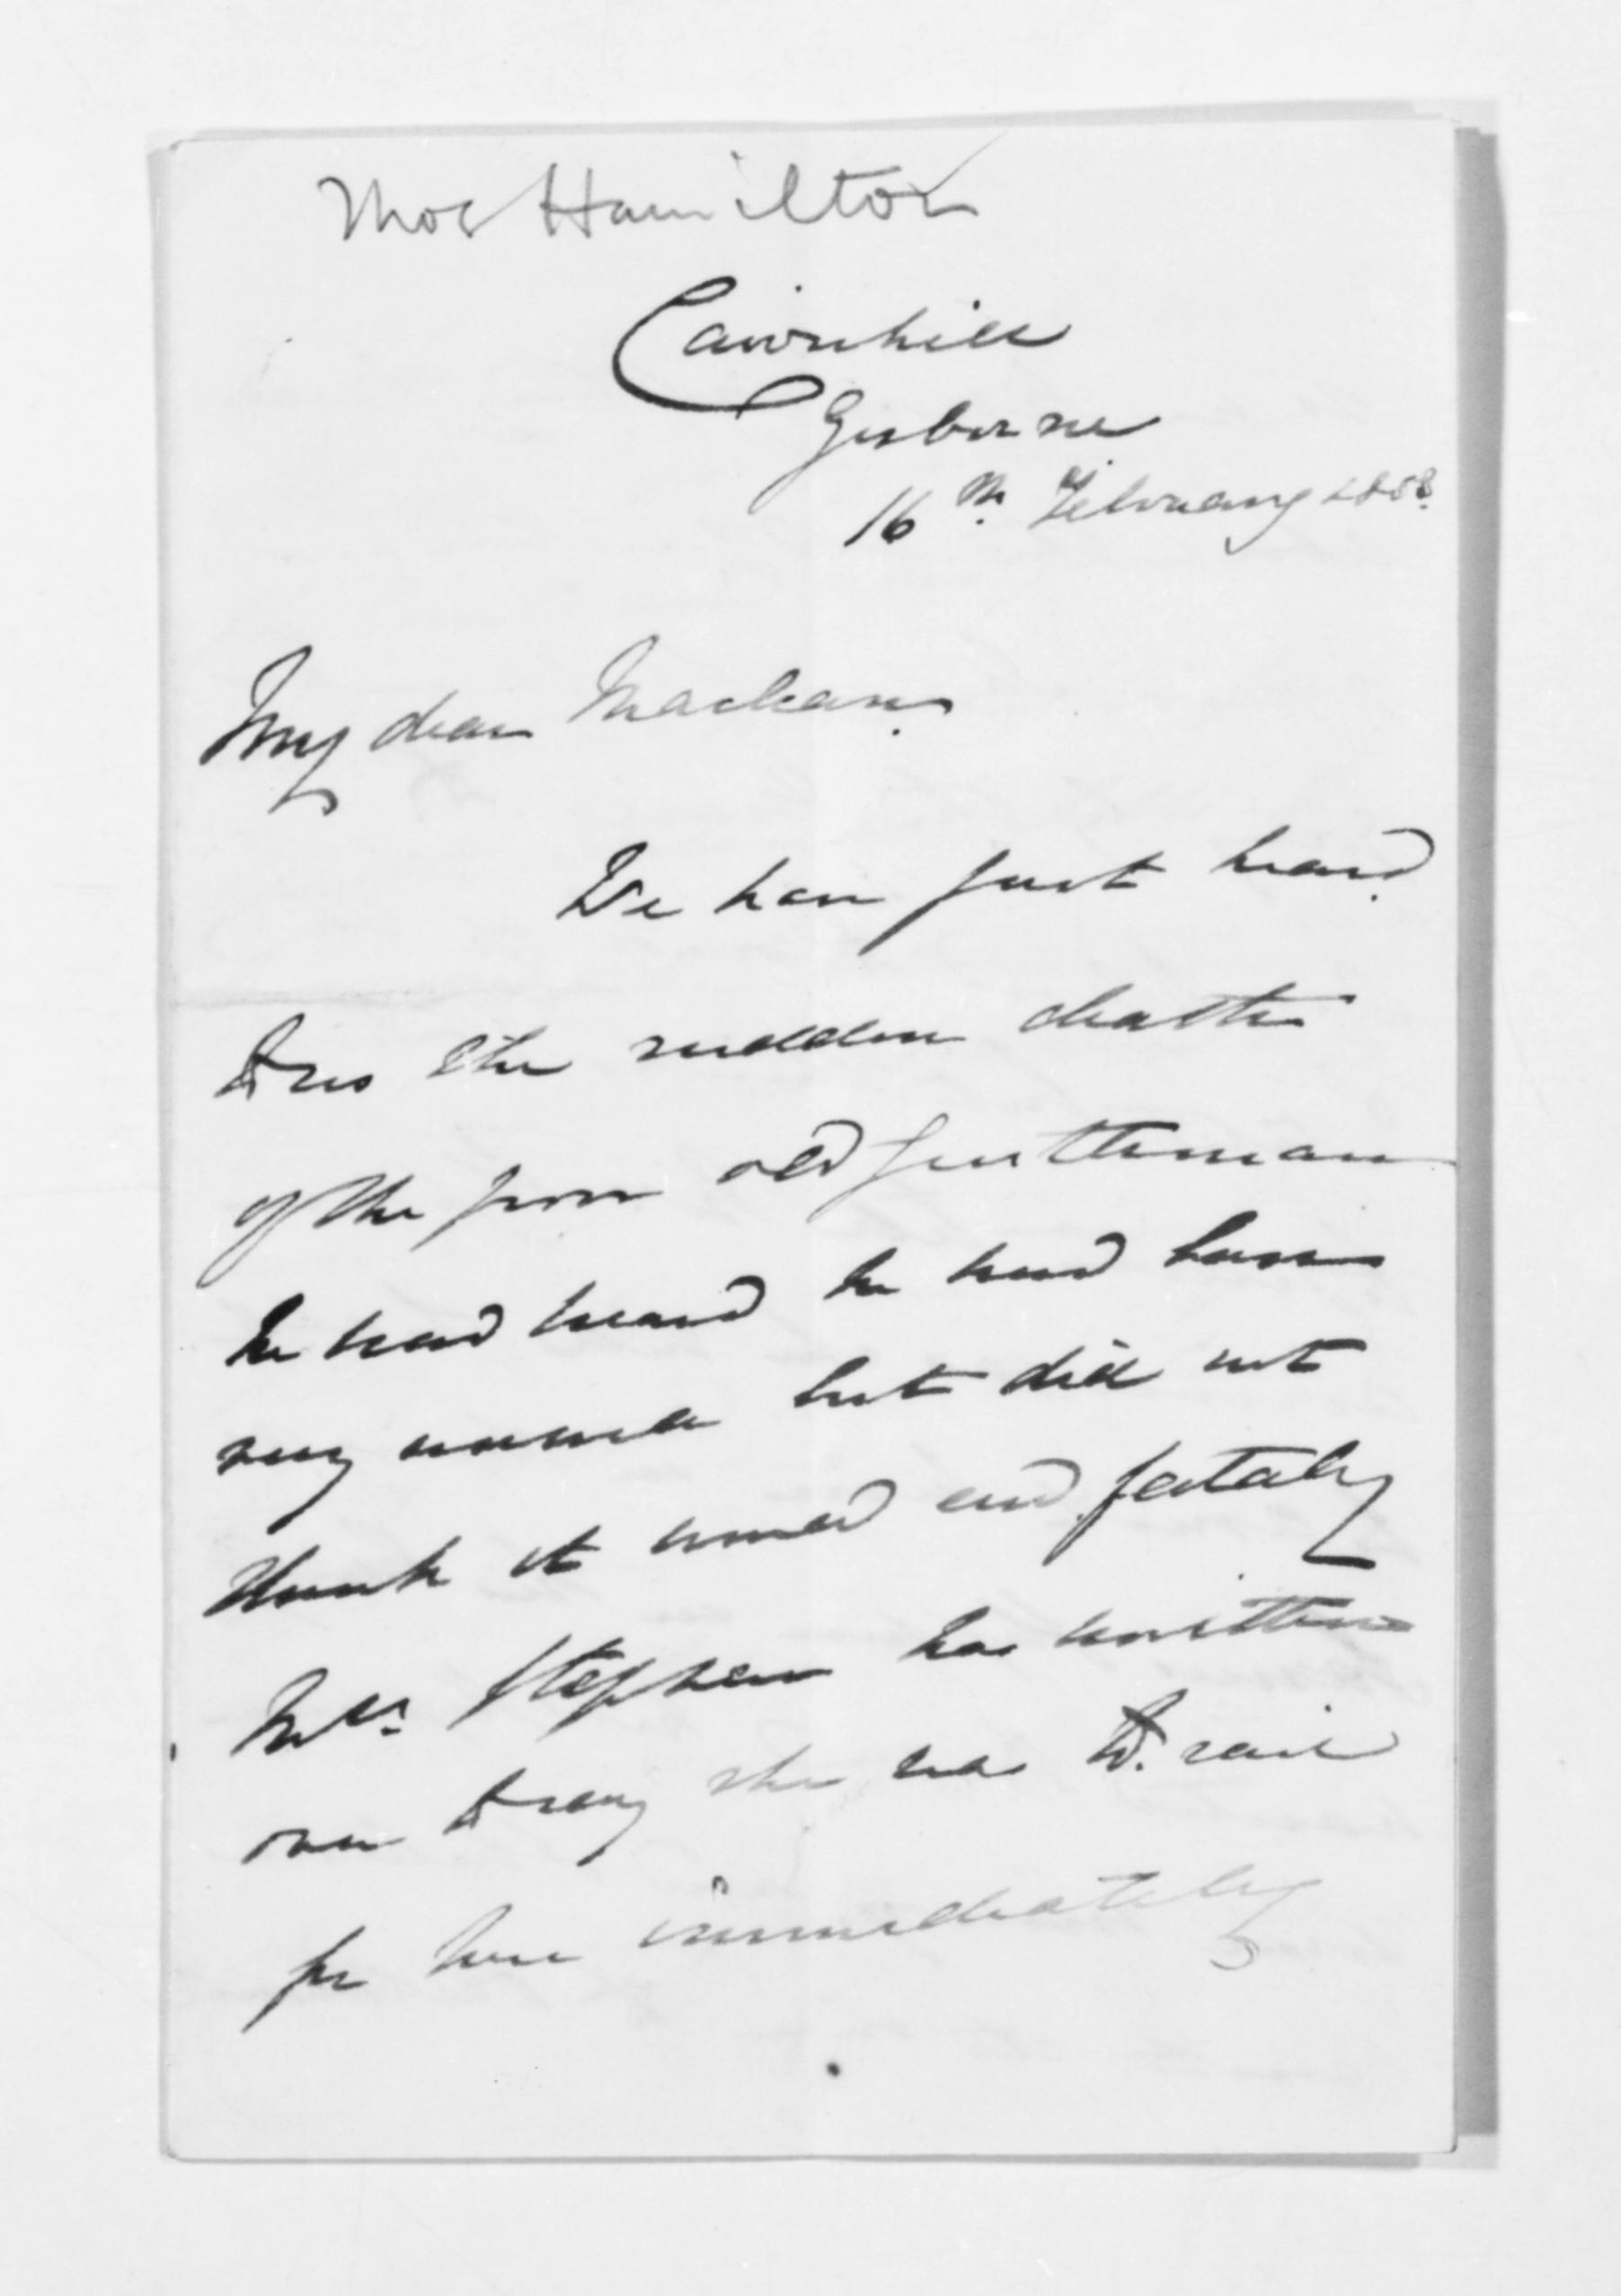 Thos Hamilton
Cairnhill
Gisborne
16th February 1858.
My dear Maclean.
We have just heard
the sudden death
of the poor old gentleman
We had heard he had been
very unwell but did not
think it would end fatally
Mrs. Stephen has written
over to say she has to sail
for home immediately